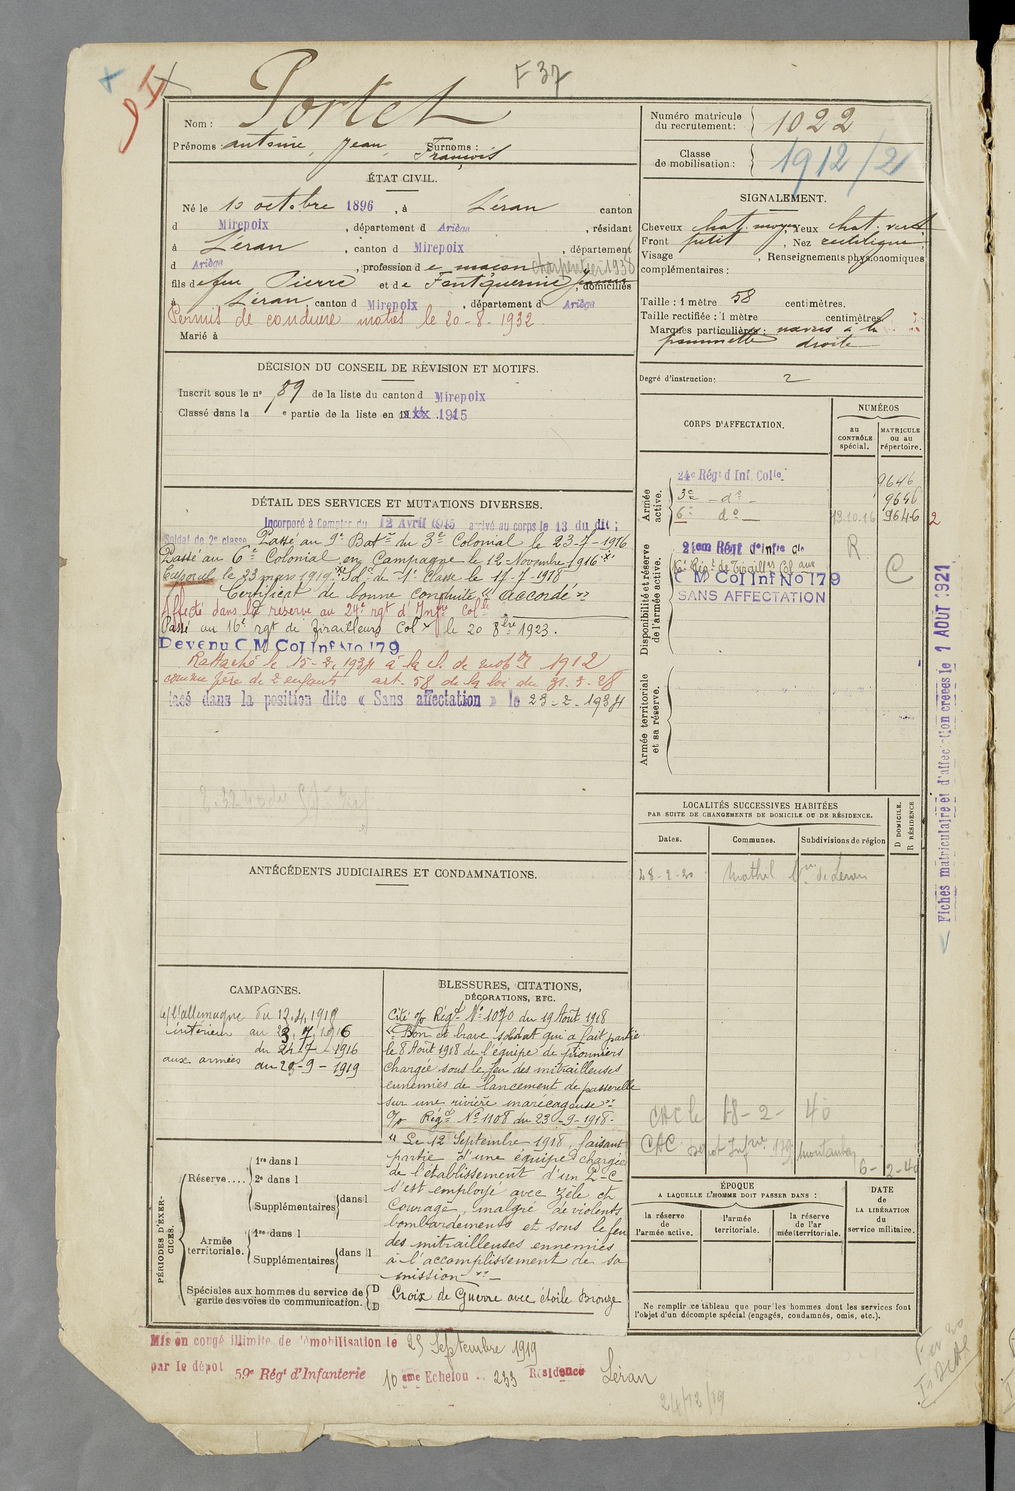 F 37
Nom : Portet
Prénoms : antoine, Jean, Surnoms :
François
ÉTAT CIVIL.
Né le 10 octobre 1896, à Léran canton
d Mirepoix, département d Ariège, résidant
à Léran, canton d Mirepoix, département
d Ariège, profession d e maçon charpentier 1938
fils de feu Pierre et de Fontguernie Jeanne, domiciliés
à Léran, canton d Mirepoix, département d Ariège
Permis de conduire motos le 20-8-1932
Marié à
DÉCISION DU CONSEIL DE RÉVISION ET MOTIFS.
Inscrit sous le n° 89 de la liste du canton d Mirepoix
Classé dans la e partie de la liste en 19xx 1915
DÉTAIL DES SERVICES ET MUTATIONS DIVERSES.
Incorporé à Compter du 12 Avril 1915 arrivé au corps le 13 du dit;
Soldat de 2e classe Passé au 9e Baton du 3e Colonial le 23-7-1916
Passé au 6e Colonial en Campagne le 12 Novembre 1916
Caporal le 23 mars 1919. Sdt de 1e Classe le 11-7-1918
Certificat de bonne conduite "Accordé"
Affecté dans la réserve au 24e rgt d'Infie Colle
Passé au 16e rgt de Tirailleurs Colx le 20 8bre 1923.
Devenu C M Col Inf No 179
Rattaché le 15-2-1934 à la cl. de mobon 1912
comme père de 2 enfants art. 58 de la loi du 31-3-28
lacé dans la position dite « Sans affectation » le 23-2-1934
ANTÉCÉDENTS JUDICIAIRES ET CONDAMNATIONS.
CAMPAGNES.
c/ l'allemagne du 12.4.1919
intérieur au 23.7.1916
du 24-7-1916
aux armées au 29-9-1919
BLESSURES, CITATIONS,
DÉCORATIONS, ETC.
Cité o/o Régt N° 1070 du 19 Août 1918
"Bon et brave soldat qui a fait partie
le 8 Août 1918 de l'équipe de pionniers
chargée sous le feu des mitrailleuses
ennemies de lancement de passerelle
sur une rivière marécageuse"
o/o Régt N° 1108 du 23-9-1918.
"Le 12 Septembre 1918, faisant
partie d'une équipe chargée
de l'établissement d'un P-C
s'est employé avec zèle et
courage, malgré de violents
bombardements et sous le feu
des mitrailleuses ennemies
à l'accomplissement de sa
mission"
Croix de Guerre avec étoile Bronze
PÉRIODES D'EXERCICES.
Réserve....
1re dans l
2e dans l
Supplémentaires dans l
Armée territoriale.
1re dans l
Supplémentaires dans l
Spéciales aux hommes du service de
garde des voies de communication.
D
D
Mis en congé illimité de démobilisation le 25 Septembre 1919
par le dépôt 59e Régt d'Infanterie 10eme Echelon .. 233 Résidence Léran
24/12/19
Numéro matricule
du recrutement : 1022
Classe
de mobilisation : 1912/2
SIGNALEMENT.
Cheveux chat. moyen, Yeux chat. vert
Front petit, Nez rectiligne
Visage , Renseignements physionomiques
complémentaires :
Taille : 1 mètre 58 centimètres.
Taille rectifiée : 1 mètre centimètres
Marques particulières: nævus à la
pommette droite
Degré d'instruction: 2
CORPS D'AFFECTATION.
NUMÉROS
AU CONTRÔLE spécial.
MATRICULE ou au répertoire.
Armée active.
24e Régt d Inf. Colle. 9646
3e - do - 9646
6e do - 13.10.16 9646 2
Disponibilité et réserve de l'armée active.
24em Régt d'Infie Cle R
16e Régt de Tirailleurs Colaux C
C M Col Inf No 179
SANS AFFECTATION
Armée territoriale et sa réserve.
LOCALITÉS SUCCESSIVES HABITÉES
PAR SUITE DE CHANGEMENTS DE DOMICILE OU DE RÉSIDENCE.
Dates.
Communes.
Subdivisions de région
D DOMICILE.
R RÉSIDENCE
CAC le 18-2-40
CAC Dépot Infrie 179 Montauban
6-2-40
ÉPOQUE
A LAQUELLE L'HOMME DOIT PASSER DANS :
la réserve de l'armée active.
l'armée territoriale.
la réserve de l'armée territoriale.
DATE DE LA LIBÉRATION du service militaire.
Ne remplir ce tableau que pour les hommes dont les services font
l'objet d'un décompte spécial (engagés, condamnés, omis, etc.).
Fiches matriculaire et d'affectation créées le 1 AOUT 1921